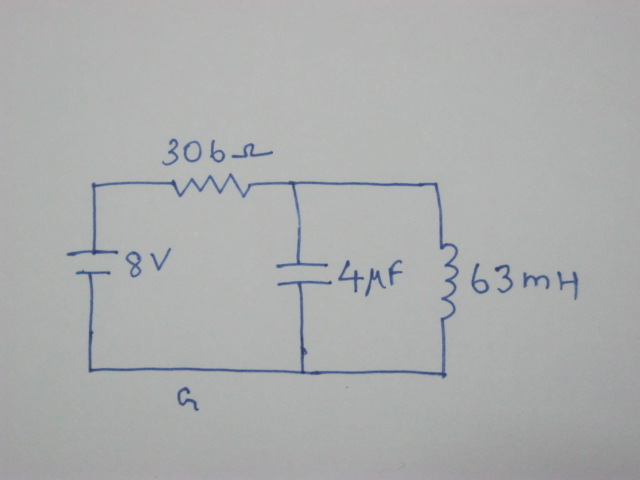 306Ω
8V
4μF
63mH
G